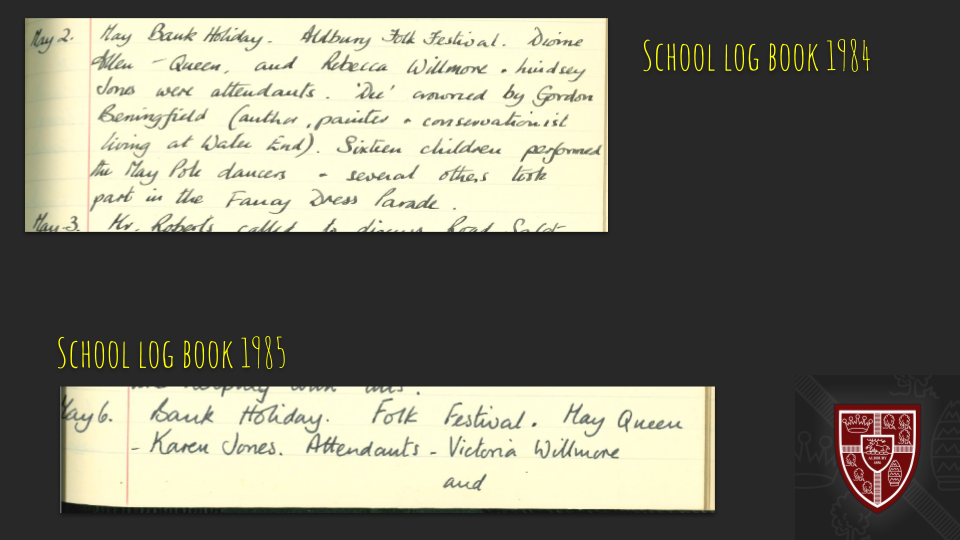 SCHOOL LOG BOOK 1984
May 2. May Bank Holiday. Aldbury Folk Festival. Dionne
Allen - Queen, and Rebecca Willmore + Lindsey
Jones were attendants. 'Dee' crowned by Gordon
Beningfield (author, painter + conservationist
living at Water End). Sixteen children performed
the May Pole dancers - several others took
part in the Fancy Dress Parade.
May 3. Mr. Roberts called to discuss Road Safet
SCHOOL LOG BOOK 1985
May 6. Bank Holiday. Folk Festival. May Queen
- Karen Jones. Attendants - Victoria Willmore
and
ALDBURY